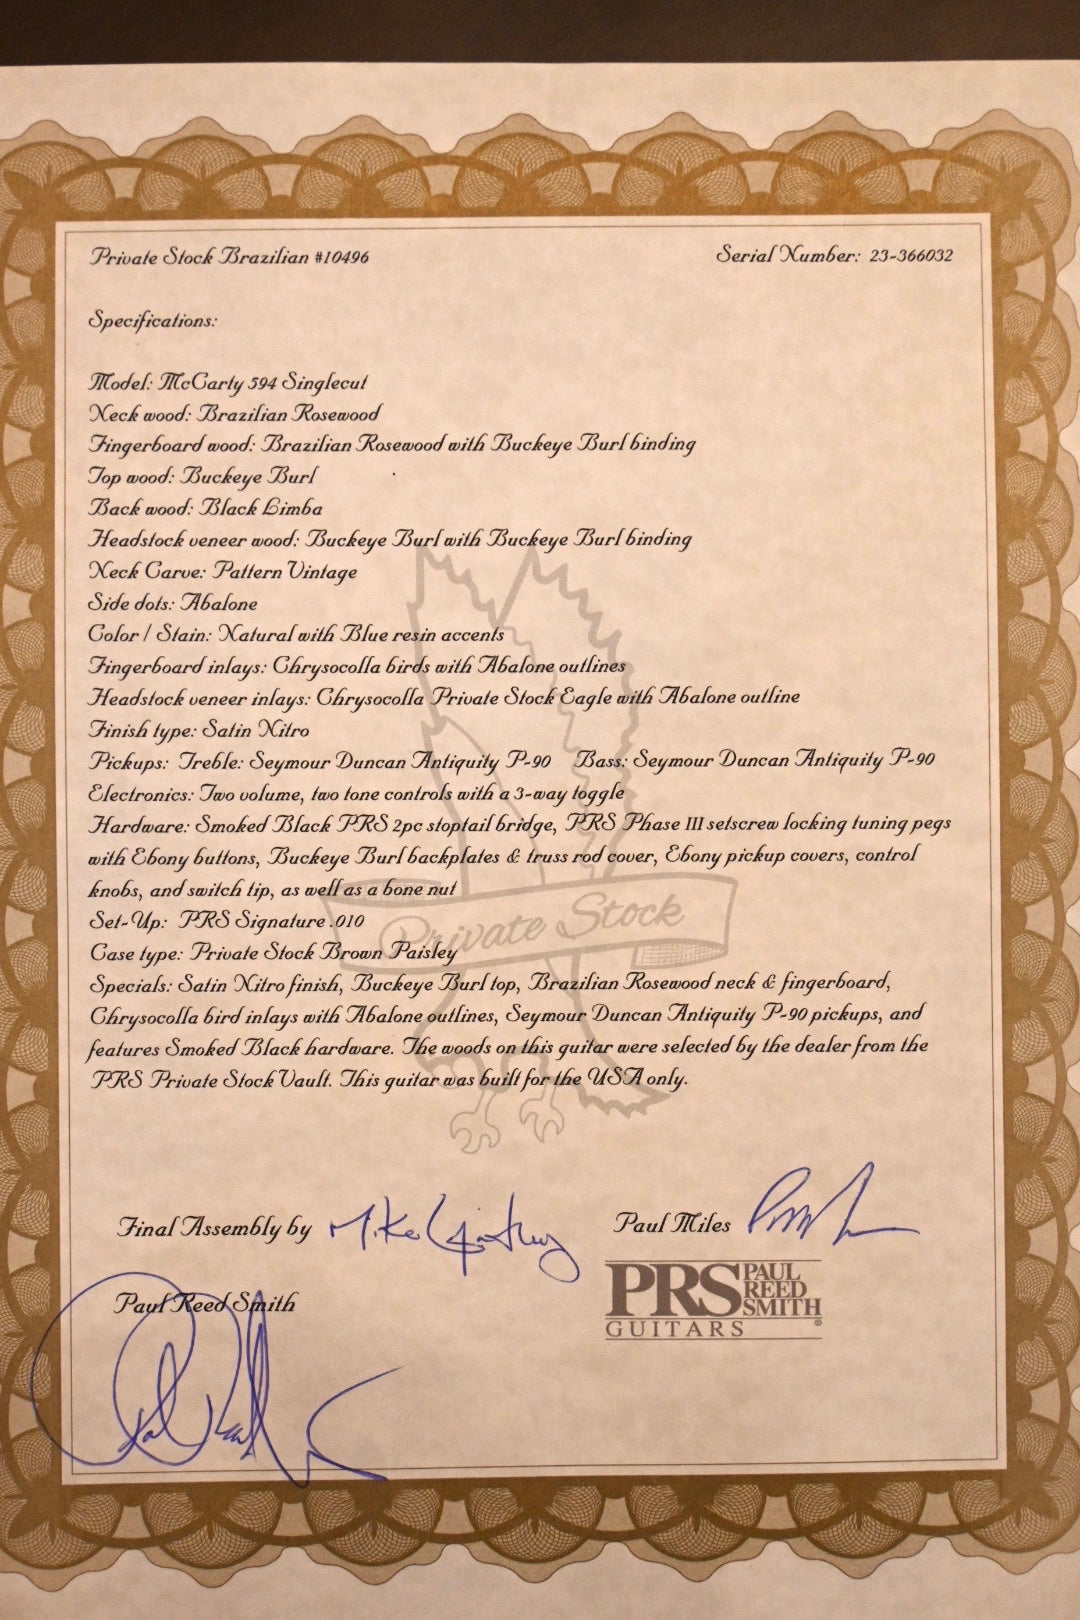 Private Stock Brazilian #10496 Serial Number: 23-366032
Specifications:
Model: McCarty 594 Singlecut
Neck wood: Brazilian Rosewood
Fingerboard wood: Brazilian Rosewood with Buckeye Burl binding
Top wood: Buckeye Burl
Back wood: Black Limba
Headstock veneer wood: Buckeye Burl with Buckeye Burl binding
Neck Carve: Pattern Vintage
Side dots: Abalone
Color / Stain: Natural with Blue resin accents
Fingerboard inlays: Chrysocolla birds with Abalone outlines
Headstock veneer inlays: Chrysocolla Private Stock Eagle with Abalone outline
Finish type: Satin Nitro
Pickups: Treble: Seymour Duncan Antiquity P-90 Bass: Seymour Duncan Antiquity P-90
Electronics: Two volume, two tone controls with a 3-way toggle
Hardware: Smoked Black PRS 2pc stoptail bridge, PRS Phase III setscrew locking tuning pegs
with Ebony buttons, Buckeye Burl backplates & truss rod cover, Ebony pickup covers, control
knobs, and switch tip, as well as a bone nut
Set-Up: PRS Signature .010
Private Stock
Case type: Private Stock Brown Paisley
Specials: Satin Nitro finish, Buckeye Burl top, Brazilian Rosewood neck & fingerboard,
Chrysocolla bird inlays with Abalone outlines, Seymour Duncan Antiquity P-90 pickups, and
features Smoked Black hardware. The woods on this guitar were selected by the dealer from the
PRS Private Stock Vault. This guitar was built for the USA only.
Final Assembly by Mike Paul Miles
Paul Reed Smith
PRS PAUL REED SMITH
GUITARS ®